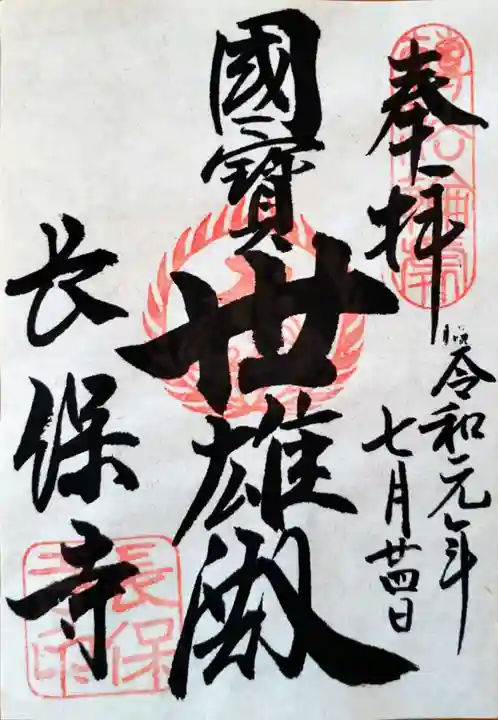 奉拝
令和元年
七月廿四日
國寳
世雄殿
長保寺
長保
寺印